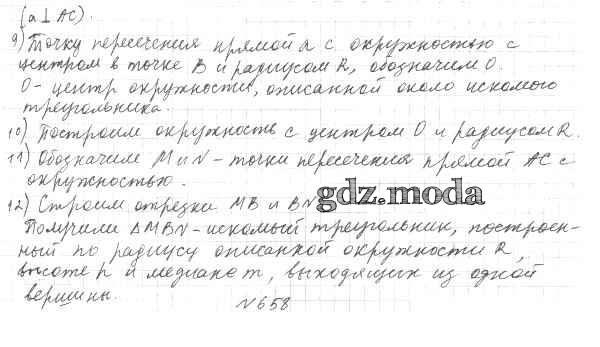 (a ⊥ AC).
9) Точку пересечения прямой a с окружностью с
центром в точке B и радиусом R, обозначим O.
O- центр окружности, описанной около искомого
треугольника.
10) Построим окружность с центром O и радиусом R.
11) Обозначим M и N - точки пересечения прямой AC с
окружностью.
12) Строим отрезки MB и BN
gdz.moda
Получили ΔMBN - искомый треугольник, построен-
ный по радиусу описанной окружности R,
высоте h и медиане m, выходящих из одной
вершины.
N658